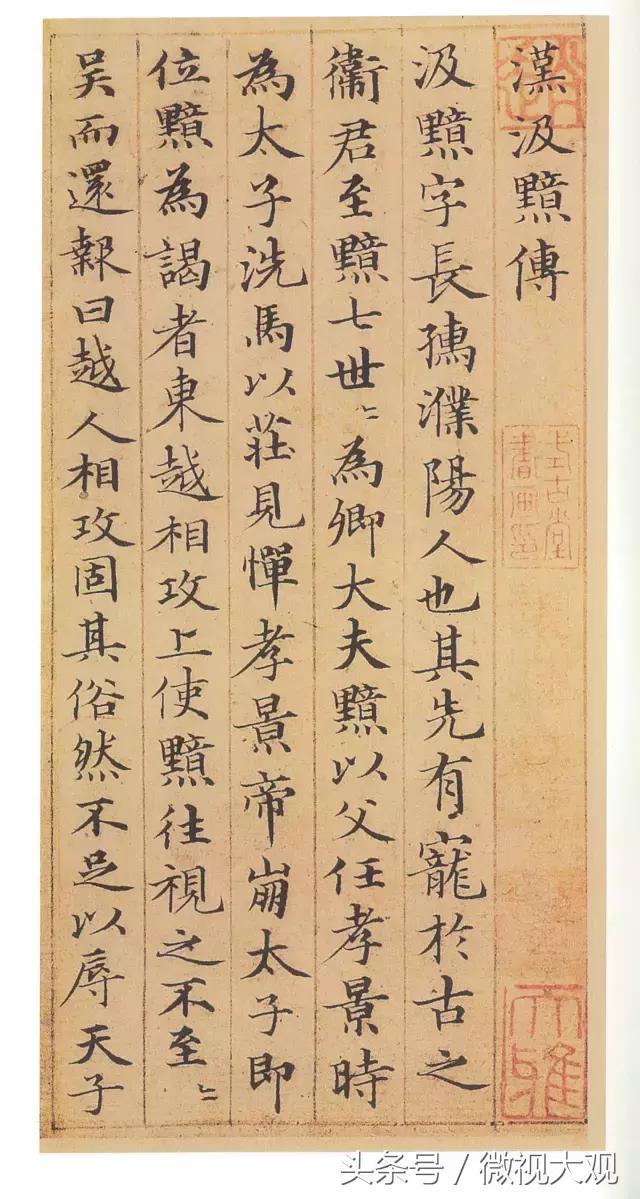 漢汲黯傳
汲黯字長孺濮陽人也其先有寵於古之
衞君至黯七世〻為卿大夫黯以父任孝景時
為太子洗馬以莊見憚孝景帝崩太子即
位黯為謁者東越相攻上使黯往視之不至〻
吳而還報曰越人相攻固其俗然不足以辱天子
式古堂
書畫印
大雅
头条号/微视大观